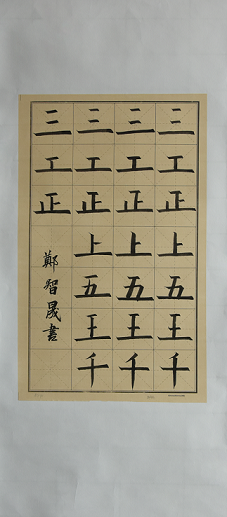 三工正上五王千
三工正上五王千
三工正上五王千
三工正
鄭智晟書